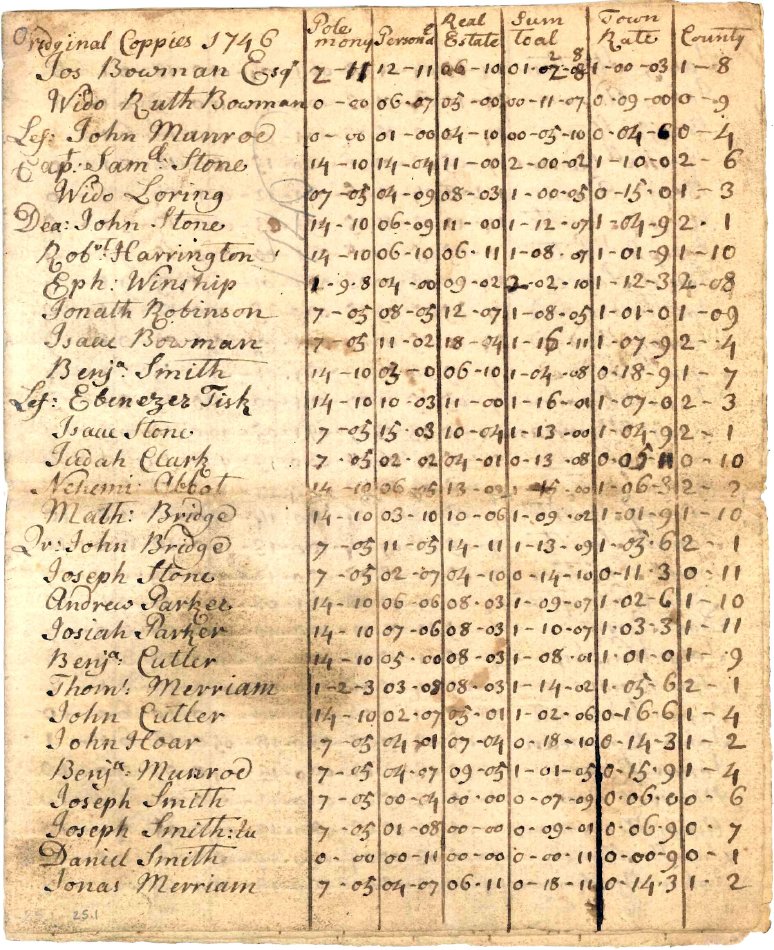 Oridginal Coppies 1746 Pole mony Person.l Real Estate Sum toal Town Rate County
Jos Bowman Esqr 7-11 12-11 06-10 01-07-8 1-00-03 1-8
Wido Ruth Bowman 0-00 06-07 05-00 00-11-07 0-09-00 0-9
Lef: John Munroe 0-00 01-00 04-10 00-05-10 0-04-6 0-4
Capt: Samll: Stone 14-10 14-04 11-00 2-00-02 1-10-0 2-6
Wido Loring 07-05 04-09 08-03 1-00-05 0-15-0 1-3
Dea: John Stone 14-10 06-09 11-00 1-12-07 1-04-9 2-1
Robrt Harrington 14-10 06-10 06-11 1-08-07 1-01-9 1-10
Eph: Winship 1-9-8 04-00 09-02 2-02-10 1-12-3 2-08
Jonath Robinson 7-05 08-05 12-07 1-08-05 1-01-0 1-09
Isaac Bowman 7-05 11-02 18-04 1-16-11 1-07-9 2-4
Benja. Smith 14-10 03-0 06-10 1-04-08 0-18-9 1-7
Lef: Ebenezer Fisk 14-10 10-03 11-00 1-16-01 1-07-0 2-3
Isaac Stone 7-05 15-03 10-04 1-13-00 1-04-9 2-1
Judah Clark 7-05 02-02 04-01 0-13-08 0-05-11 0-10
Nehemi Abbot 14-10 06-05 13-03 1-06-3
Math: Bridge 14-10 03-10 10-06 1-09-02 1-01-9 1-10
Qr: John Bridge 7-05 11-05 14-11 1-13-09 1-05-6 2-1
Joseph Stone 7-05 02-07 04-10 0-14-10 0-11-3 0-11
Andrew Parker 14-10 06-06 08-03 1-09-07 1-02-6 1-10
Josiah Parker 14-10 07-06 08-03 1-10-07 1-03-3 1-11
Benja: Cutler 14-10 05-00 08-03 1-08-01 1-01-0 1-9
Thoms: Merriam 1-2-3 03-08 08-03 1-14-02 1-05-6 2-1
John Cutler 14-10 02-07 05-01 1-02-06 0-16-6 1-4
John Hoar 7-05 04-01 07-04 0-18-10 0-14-3 1-2
Benja: Munroe 7-05 04-07 09-05 1-01-05 0-15-9 1-4
Joseph Smith 7-05 00-04 00-00 0-07-09 0-06-0 0-6
Joseph Smith: 7-05 01-08 00-00 0-09-01 0-06-9 0-7
Daniel Smith 0-00 00-11 00-00 0-00-11 0-00-9 0-1
Jonas Merriam 7-05 04-07 06-11 0-18-11 0-14-3 1-2
25.1